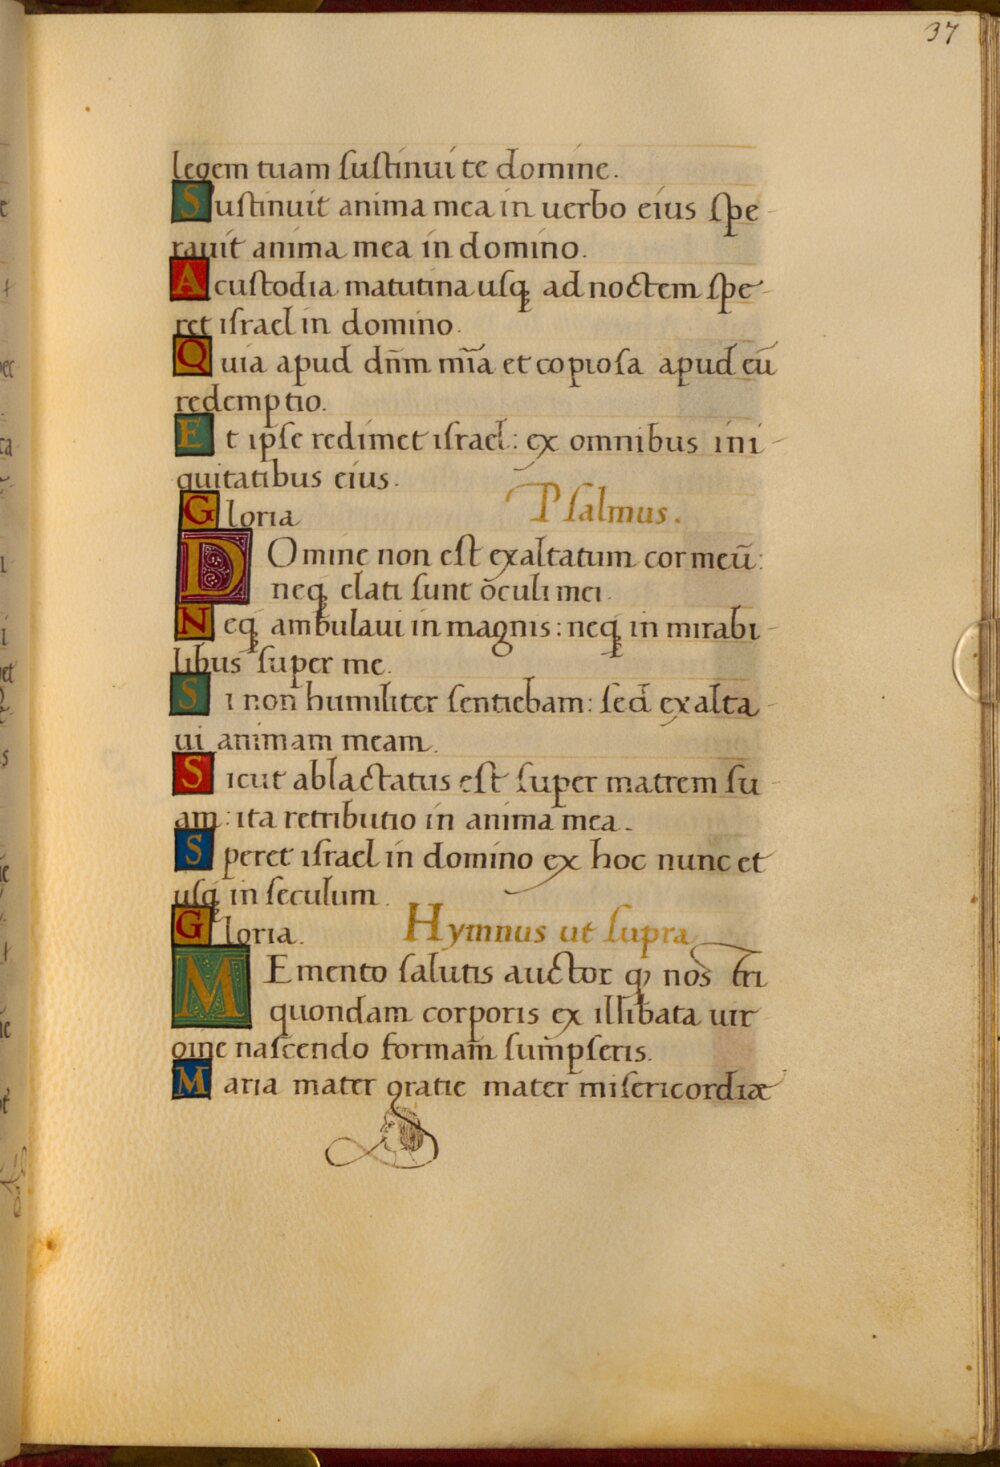 37
legem tuam sustinui te domine.
Sustinuit anima mea in uerbo eius spe-
rauit anima mea in domino.
A custodia matutina usq; ad noctem spe-
ret israel in domino.
Quia apud dn̄m mīa et copiosa apud eū
redemptio.
Et ipse redimet israel: ex omnibus ini-
quitatibus eius.
Gloria Psalmus.
DOmine non est exaltatum cor meū:
neq; elati sunt oculi mei.
Neq; ambulaui in magnis: neq; in mirabi-
libus super me.
Si non humiliter sentiebam: sed exalta-
ui animam meam.
Sicut ablactatus est super matrem su-
am: ita retributio in anima mea.
Speret israel in domino ex hoc nunc et
usq; in seculum.
Gloria. Hymnus ut supra
MEmento salutis auctor q nos tri
quondam corporis ex illibata uir
gine nascendo formam sumpseris.
Maria mater gratie mater misericordiæ